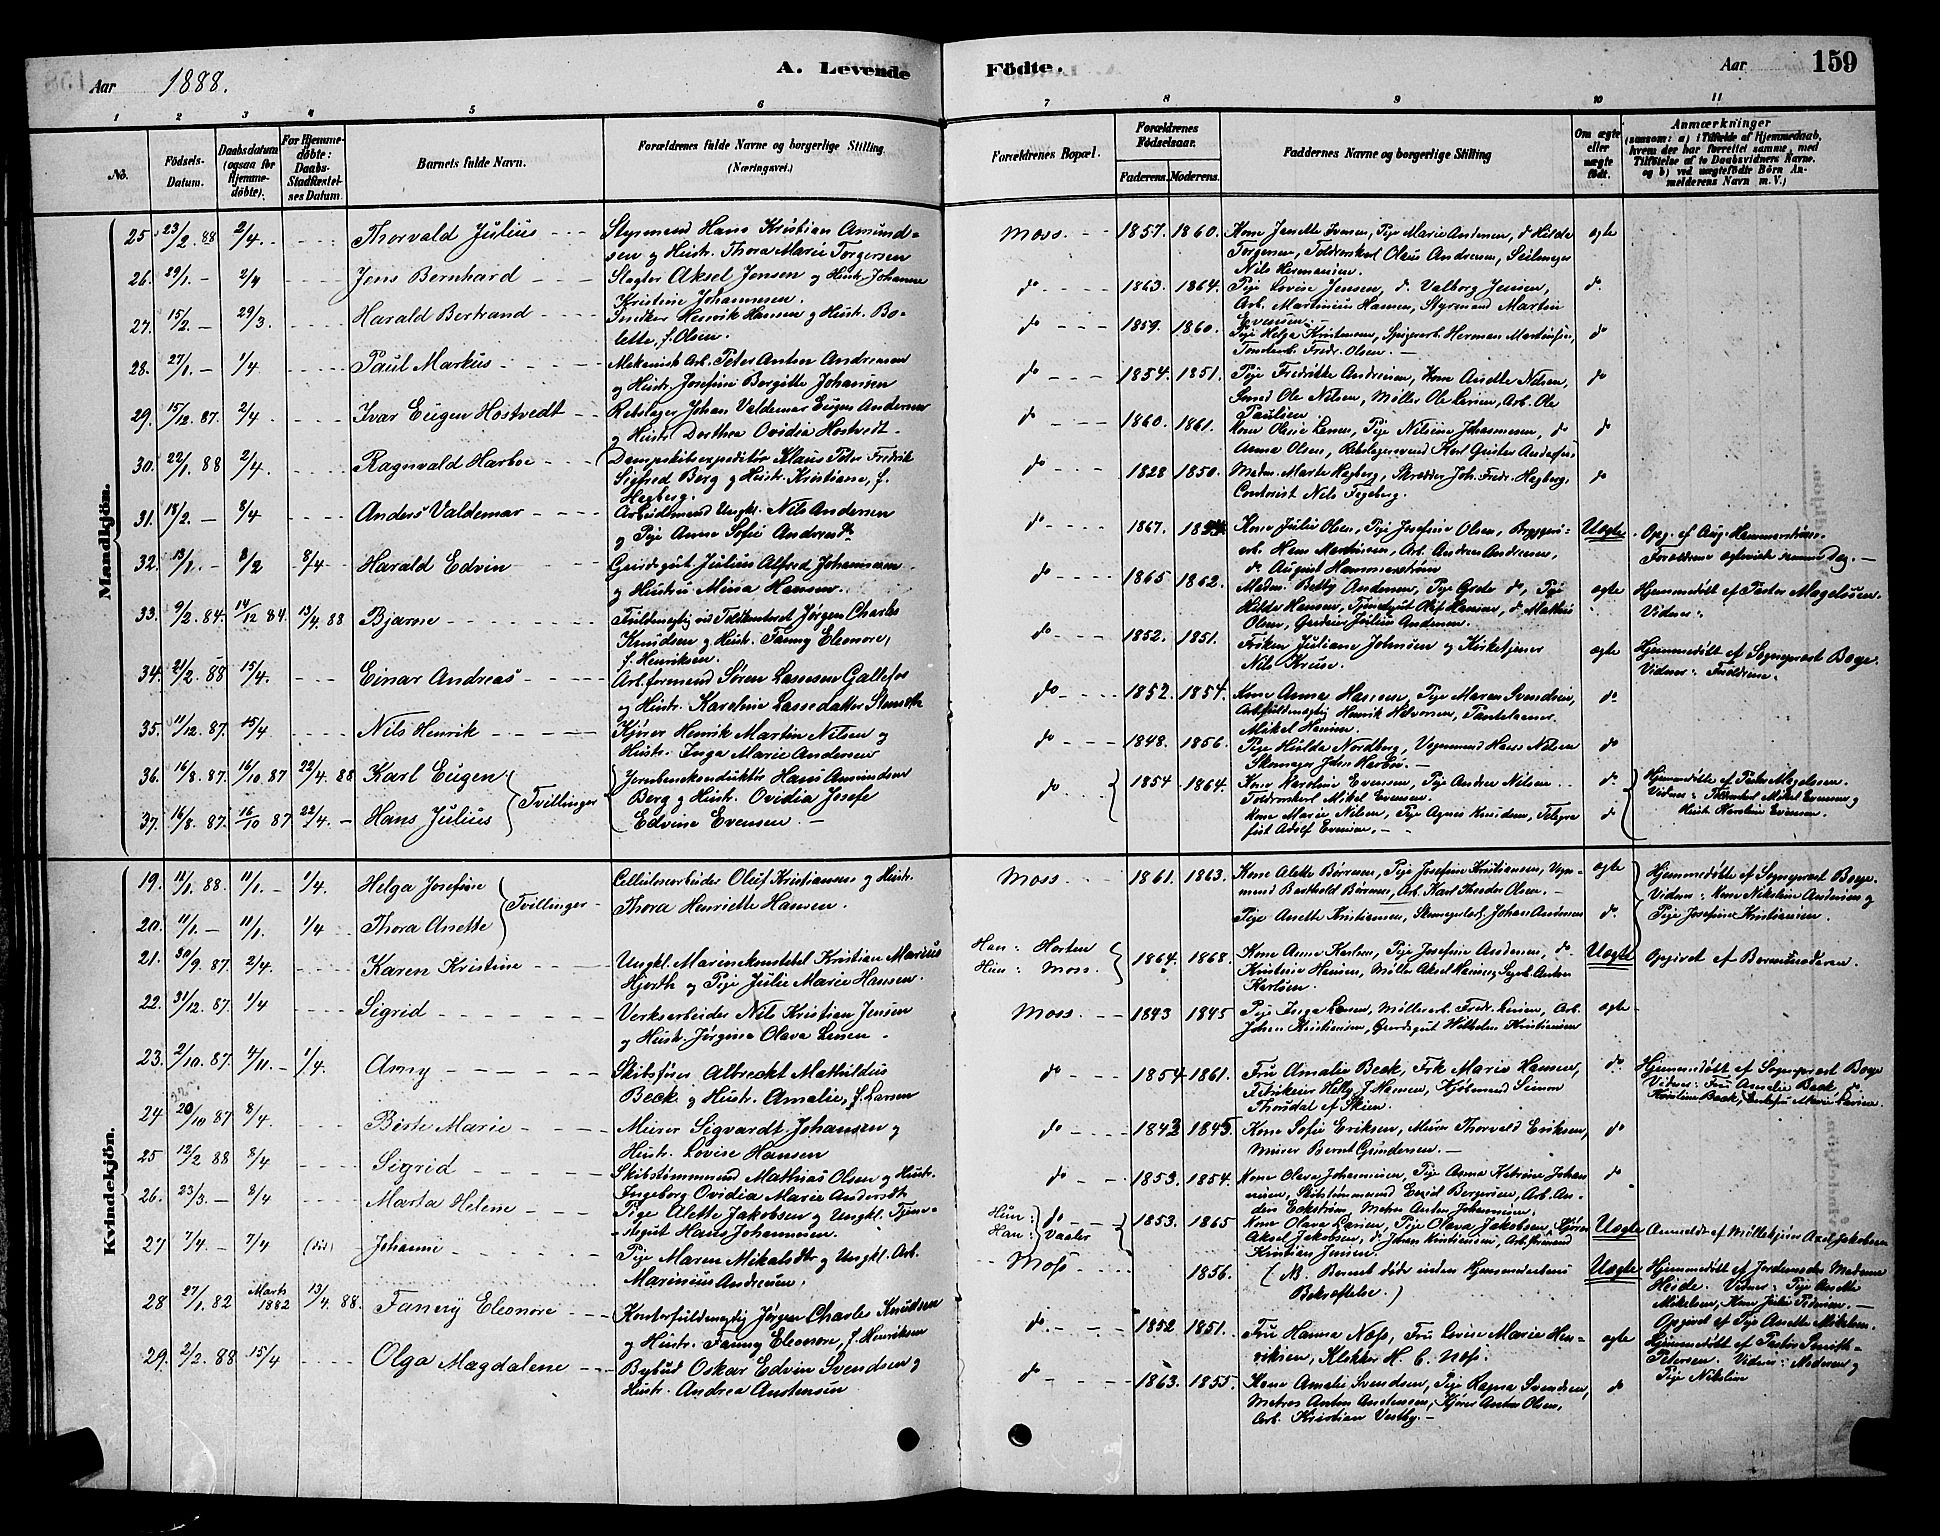 Aar 1888. A. Levende
Födte. Aar 159
1 2 3 4 5 6
7 8 9 10 11
No.
Födsels-Datum.
Daabsdatum (ogsaa for Hjemmedöbte).
For Hjemmedöbte: Daabs-Stadfæstelses Datum.
Barnets fulde Navn.
Forældrenes fulde Navne og borgerlige Stilling
(Næringsvei.)
Forældrenes Bopæl.
Forældrenes Födselsaar.
Faderens. Moderens.
Faddernes Navne og borgerlige Stilling
Om ægte eller uægte födt.
Anmærkninger
(saasom: a) i Tilfælde af Hjemmedaab, hvem der har forrettet samme, med Tilföielse af to Daabsvidners Navne, og b) ved uægtefödte Börn Anmelderens Navn m. V.)
Mandkjön.
25 23/2 88 2/4 Thorvald Julius Styrmand Hans Kristian Amund-
sen og Hustr. Thora Marie Torgersen
26. 29/1 - 2/4 Jens Bernhard Slagter Aksel Jensen og Hustr. Johanne
Kristine Johannesen.
27. 15/2 - 29/3. Harald Bertrand Snedker Henrik Hansen og Hustr. Bo-
lette, f. Olsen.
28. 27/1 - 1/4 Paul Markus Mekanisk Arb. Peter Anton Andresen
og Hustr. Josefine Borgitte Johansen
29. 15/12. 87. 2/4 Ivar Eugen Hostvedt Rebslager Johan Valdemar Eugen Andersen
og Hustr. Dorthea Ovidia Hostvedt
30. 22/1 88 2/4 Ragnvald Harboe Dampskibsexpeditör Klaus Peter Fredrik
Sigfred Berg og Hustr. Kristiane, f.
Hegberg.
31. 18/2 - 8/4 Anders Valdemar Arbeidsmand Ungkl. Nils Andersen
og Pige Anne Sofie Andersd.
32. 13/1 - 8/2 8/4 Harald Edvin Gaardsgut Julius Alfred Johannesen
og Hustru Mina Hansen.
33. 9/2. 84. 14/12 84. 13/4. 88 Bjarne Fuldmægtig ved Toldkontoret Jørgen Charles
Knudsen og Hustr. Fanny Eleonore,
f. Henriksen.
34. 21/2. 88 15/4. Einar Andreas Arb.formand Søren Lassesen Gallefos
og Hustr. Karoline Lassedatter
35. 11/12. 87. 15/4 Nils Henrik Kjører Henrik Martin Nilsen og
Hustr. Inga Marie Andersen
36. 16/8. 87. 16/10. 87 22/4. 88 Karl Eugen Jernbanekonduktör Hans Amundsen
37. 16/8. 87. 16/10 87 22/4. - Hans Julius Tvillinger Berg og Hustr. Ovidia Josefe
Edvine Evensen
Kvindekjön.
19. 11/1. 88. 11/1. - 1/4. Helga Josefine Cellulosearbeider Oluf Kristiansen og Hustr.
20. 11/1. - 11/1. 1/4 Thora Anette Tvillinger Thora Henriette Hansen.
21. 30/9. 87. 2/4. Karen Kristine Ungkl. Marinekonstabel Kristian Marius
Hjorth og Pige Julie Marie Hansen.
22. 31/12. 87. 1/4 Sigrid Verksarbeider Nils Kristian Jensen
og Hustr. Jørgine Olava Larsen.
23. 2/10. 87. 4/11. - 1/4. Anny Skibsfører Albreckt Mathildus
Beck og Hustr. Amalie, f. Larsen
24 20/10 87 8/4. Börte Marie Murer Sigvardt Johansen og
Hustr. Lovise Hansen
25 12/2 88 8/4 Sigrid Skibstømmermand Mathias Olsen og Hustr.
Ingeborg Ovidia Marie Andersdt
26. 23/3. - 8/4 Marta Helene Pige Alette Jakobsen og Ungkl. Tjen-
estegut Hans Johannesen.
27 7/4. - 7/4 (död) Johanne Pige Maren Mikalsdtr og Ungkl. Arb.
Marinius Andresen.
28 27/1. 82 Marts 1882 13/4. 88. Fanny Eleonore Kontorfuldmægtig Jørgen Charles Knudsen
og Hustr. Fanny Eleonore, f. Henriksen
29. 2/2. 88 15/4 Olga Magdalene Bybud Oskar Edvin Svendsen og
Hustr. Andrea Andersen
Moss. 1857. 1860. Kone Janette Ivensen, Pige Marie Andersen, do Hilda ægte
Torgersen, Toldrorskarl Olaus Andersen, Seilmager
Nils Hermansen.
do 1863. 1864. Pige Lovise Jensen, do. Valborg Jensen, do.
Arb. Martinius Hansen, Styrmand Martin
Evensen.
do 1859. 1860. Pige Helga Kristensen, Spigerarb. Herman Martinsen, do
Tøndearb. Fredr. Olsen.
do 1854. 1851. Pige Fredrikke Andresen, Kone Anette Nilsen, do
Smed Ole Nilsen, Møller Ole Larsen, Arb. Ole
Paulsen
do 1860. 1861. Kone Oline Larsen, Pige Nilsine Johannesen, do do
Anna Olsen, Rebslagersvend Karl Gustav Andersen
do 1828 1850. Madm. Marte Hegberg, Skrædder Joh. Fredr. Hegberg, do
Contorist Nils Fogeberg.
do 1867. Kone Julie Olsen, Pige Josefine Olsen, Bryggeri- Uægte Opg. af Aug. Hammerstrøm.
arb. Hans Martinsen, Arb. Andreas Andresen, Forældrene ægteviet samme Dag.
do. August Hammerstrøm
do 1865 1862. Madm. Betty Andersen, Pige Grete do, Pige ægte Hjemmedöbt af Pastor Magelssen.
Hilda Hansen, Tjenestegut Olaf Hansen, do Mathias Vidner:
Olsen, Garder Julius Andersen.
do 1852. 1851. Frøken Juliane Johnsen og Kirketjener ægte Hjemmedöbt af Sogneprest Boye.
Nils Krun. Vidner: Forældrene.
do 1852. 1854. Kone Anna Hansen, Pige Maren Svendsen, do.
Arb.fuldmægtig Henrik Halvorsen, Pantelaaner
Mikal Hansen.
do 1848. 1856. Pige Hulda Nordberg, Vognmand Hans Nilsen do
Skomager John Harboe.
do 1854 1864. Kone Karoline Evensen, Pige Andrea Nilsen do. Hjemmedöbt af Pastor Magelssen.
Toldrorskarl Mikal Evensen. Vidner: Toldrorskarl Mikal Evensen og
Kone Marie Nilsen, Pige Agnes Knudsen, Telegra- do Hustr. Karoline Evensen.
fist Adolf Evensen.
Moss 1861. 1863. Kone Alette Børresen, Pige Josefine Kristiansen, Vogn- ægte Hjemmedöbt af Sogneprest Boye.
mand Barthold Børresen, Arb. Karl Teodor Olsen. Vidner: Kone Nikoline Andersen og
Pige Anette Kristiansen, Johan Andersen do. Pige Josefine Kristiansen.
Han: Horten 1864. 1868. Kone Anna Karlsen, Pige Josefine Andersen, do Uægte Opgivet af Barnemoderen.
Hun: Moss. Kristine Hansen, Møller Aksel Hansen, Anton
Karlsen.
Moss. 1843 1845 Pige Inga Larsen, Møllerarb. Fredr. Larsen, Arb. ægte
Johan Kristiansen, Gardsgut Wilhelm Kristiansen
do 1854 1861. Fru Amalie Beck, Frk Marie Hansen, do Hjemmedöbt af Sogneprest Boye
Helly J. Hansen, Kjøbmand Simon Vidner: Fru Amalie Beck,
Thorsdal af Skien. Kristine Beck, Marie Larsen.
do 1842 1845 Kone Sofie Eriksen, Murer Thorvald Eriksen, do
Murer Bernt Gundersen.
do 1853. 1854. Kone Olava Johannesen, Pige Anna Katrine Johan- do
nesen, Skibstømmermand Enid Bergersen, Arb. An-
ders Eckstrøm, Matros Anton Johannesen.
Hun: do 1853. 1865 Kone Olava Larsen, Pige Olava Jakobsen, Kjører Uægte Anmeldt af Møllebetjen Axel Jakobsen
Han: Vaaler Aksel Jakobsen, do Johan Kristiansen, Arb.formand
Kristian Jensen.
Moss 1856. (NB. Barnet døde inden Hjemmedaabens Uægte Hjemmedöbt af Jordemoder Madame
Bekræftelse.) Heide. Vidner: Pige Anette
Mikalsen, Kone Julie Pedersen.
Opgivet af Pige Anette Mikalsen.
do 1852 1851. Fru Hanna Næss, Fru Lovise Marie Hen- ægte Hjemmedöbt af Pastor Smith-
riksen, Klokker H. C. Næss. Petersen. Vidner: Moderen og
Pige Nikoline
do 1863. 1855. Kone Amalie Svendsen, Pige Ragna Svendsen, do
Matros Anton Andersen, Kjører Anton Olsen,
Arb. Kristian Vestby.